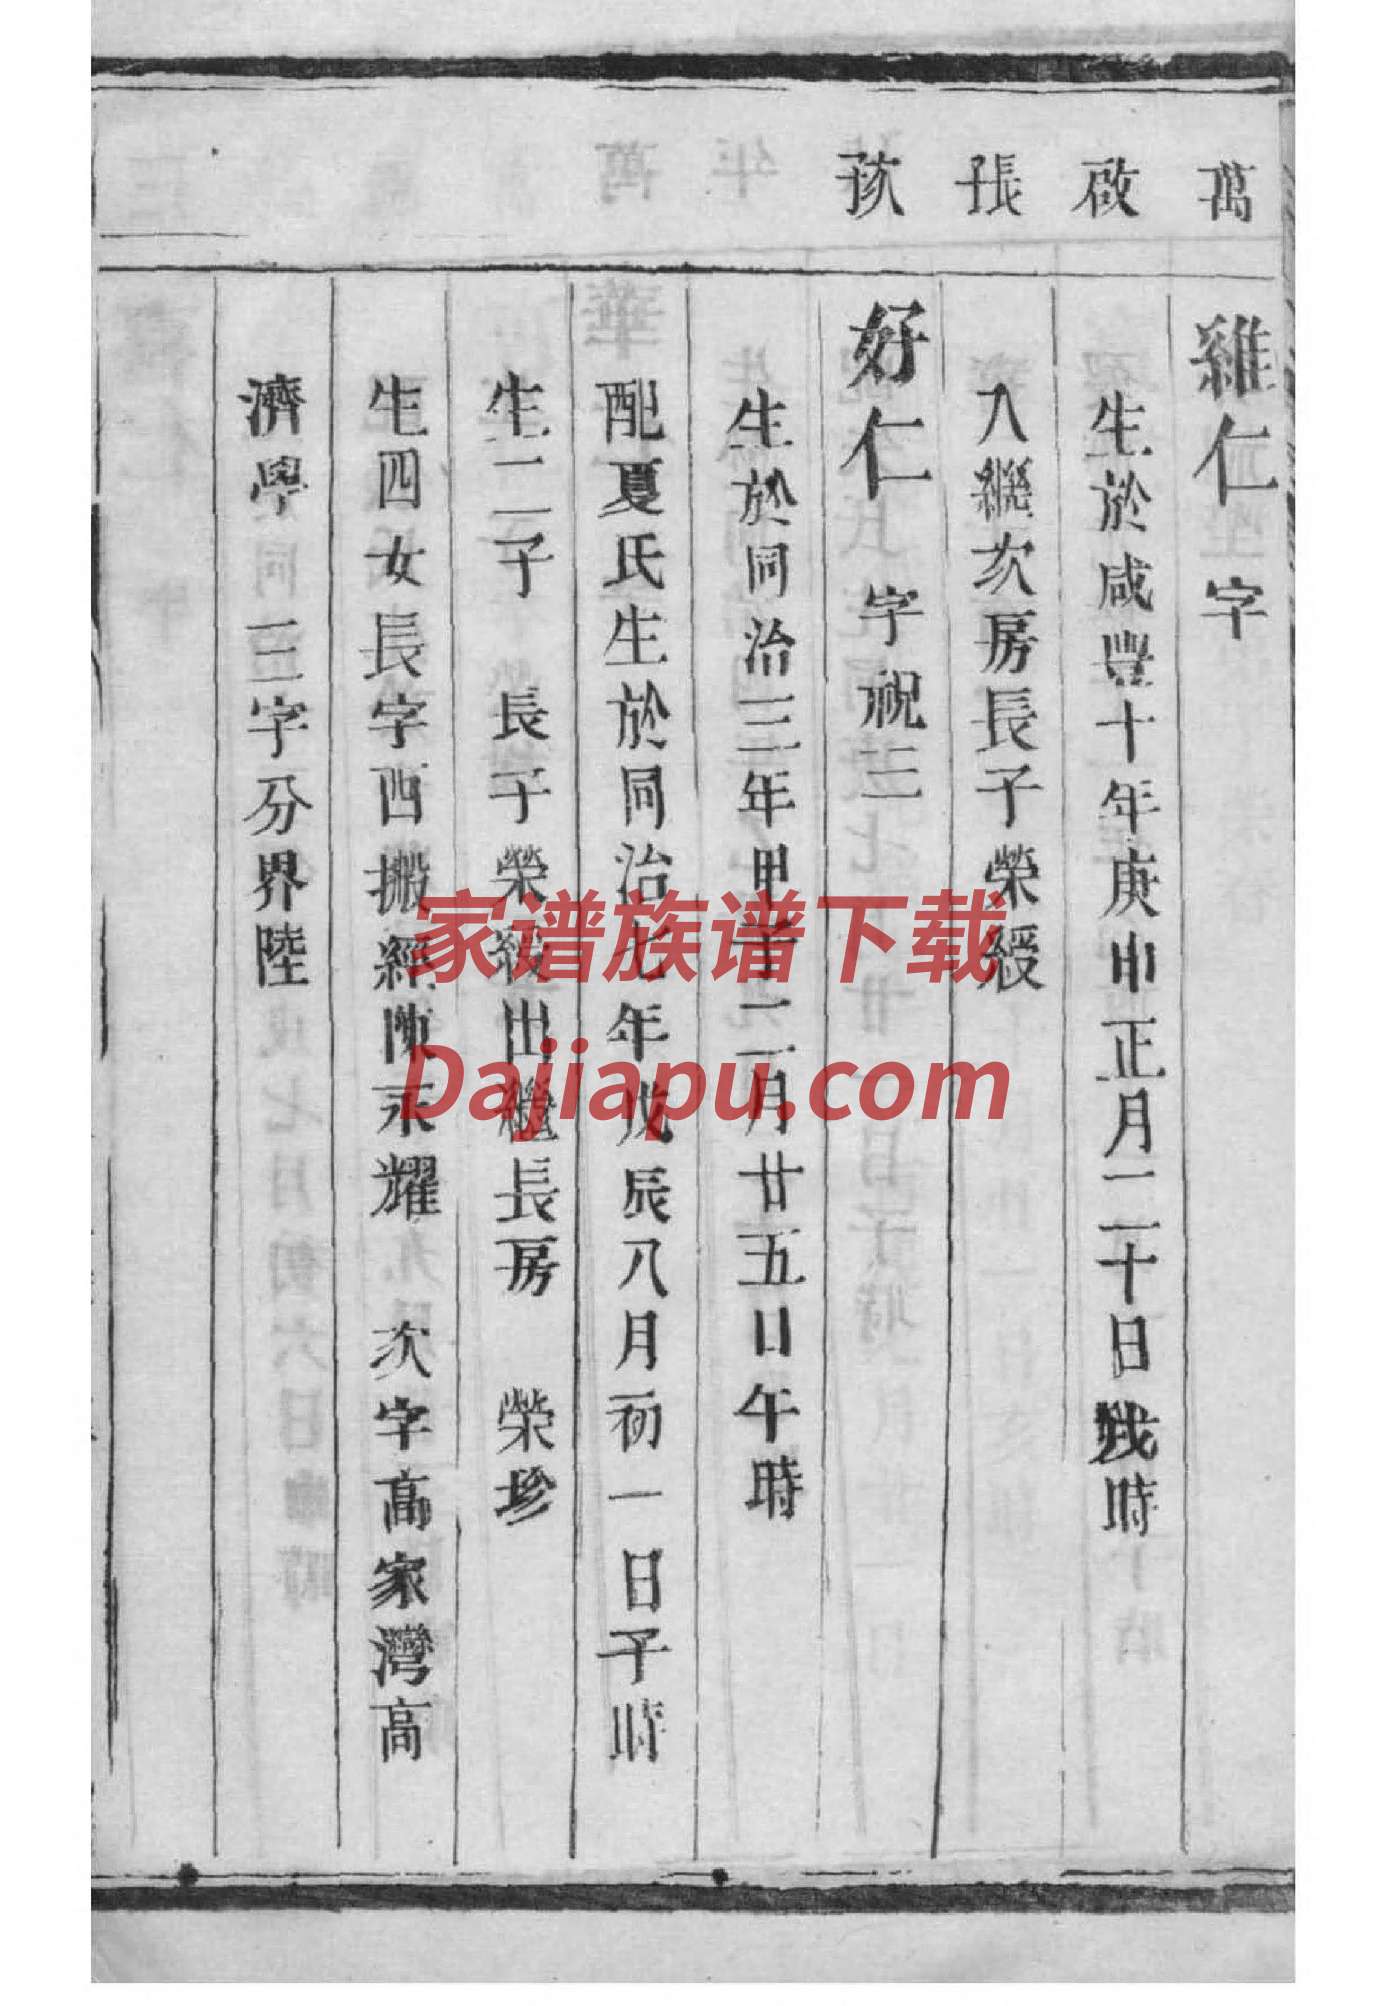 萬啟張孩
雞仁 字
生於咸豐十年庚申正月二十日戌時
入繼次房長子榮綬
好仁 字祝三
生於同治三年甲子二月廿五日午時
配夏氏生於同治七年戊辰八月初一日子時
生二子 長子榮綬出繼長房 榮珍
生四女長字西搬經陳永耀 次字高家灣高
濟學 三字分界陸
家谱族谱下载
Dajiapu.com